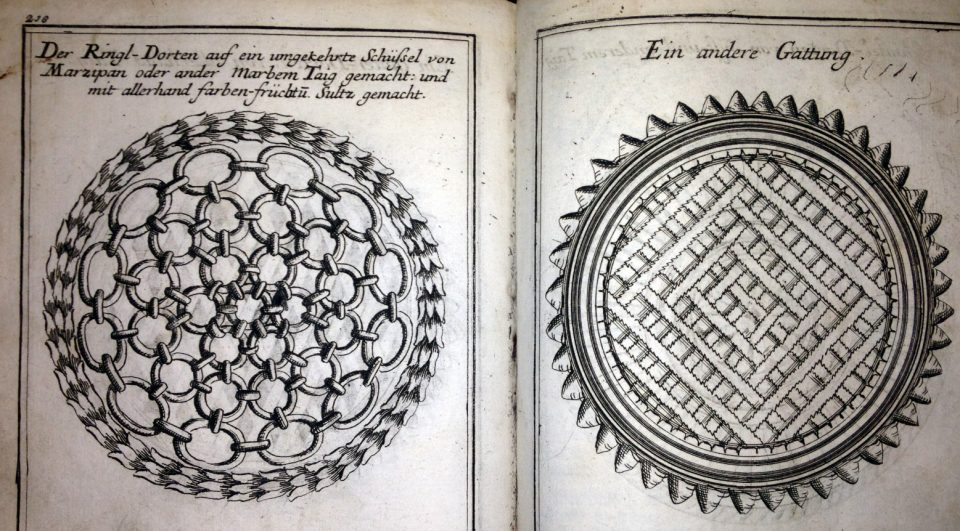 218
Der Ringl-Dorten auf ein umgekehrte Schüßel von
Marzipan oder ander Marbem Taig gemacht: und
mit allerhand farben-früchtū Sultz gemacht.
Ein andere Gattung.